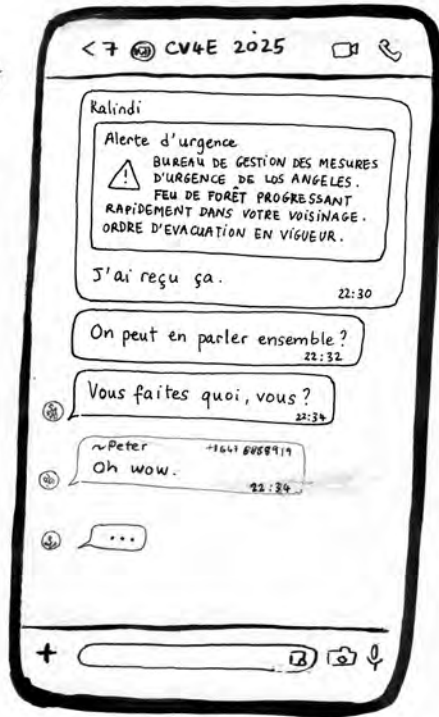 < 7 CV4E 2025
Kalindi
Alerte d'urgence
BUREAU DE GESTION DES MESURES
D'URGENCE DE LOS ANGELES.
FEU DE FORÊT PROGRESSANT
RAPIDEMENT DANS VOTRE VOISINAGE.
ORDRE D'EVACUATION EN VIGUEUR.
J'ai reçu ça.
22:30
On peut en parler ensemble?
22:32
Vous faites quoi, vous?
22:34
~Peter
Oh wow.
22:34
...